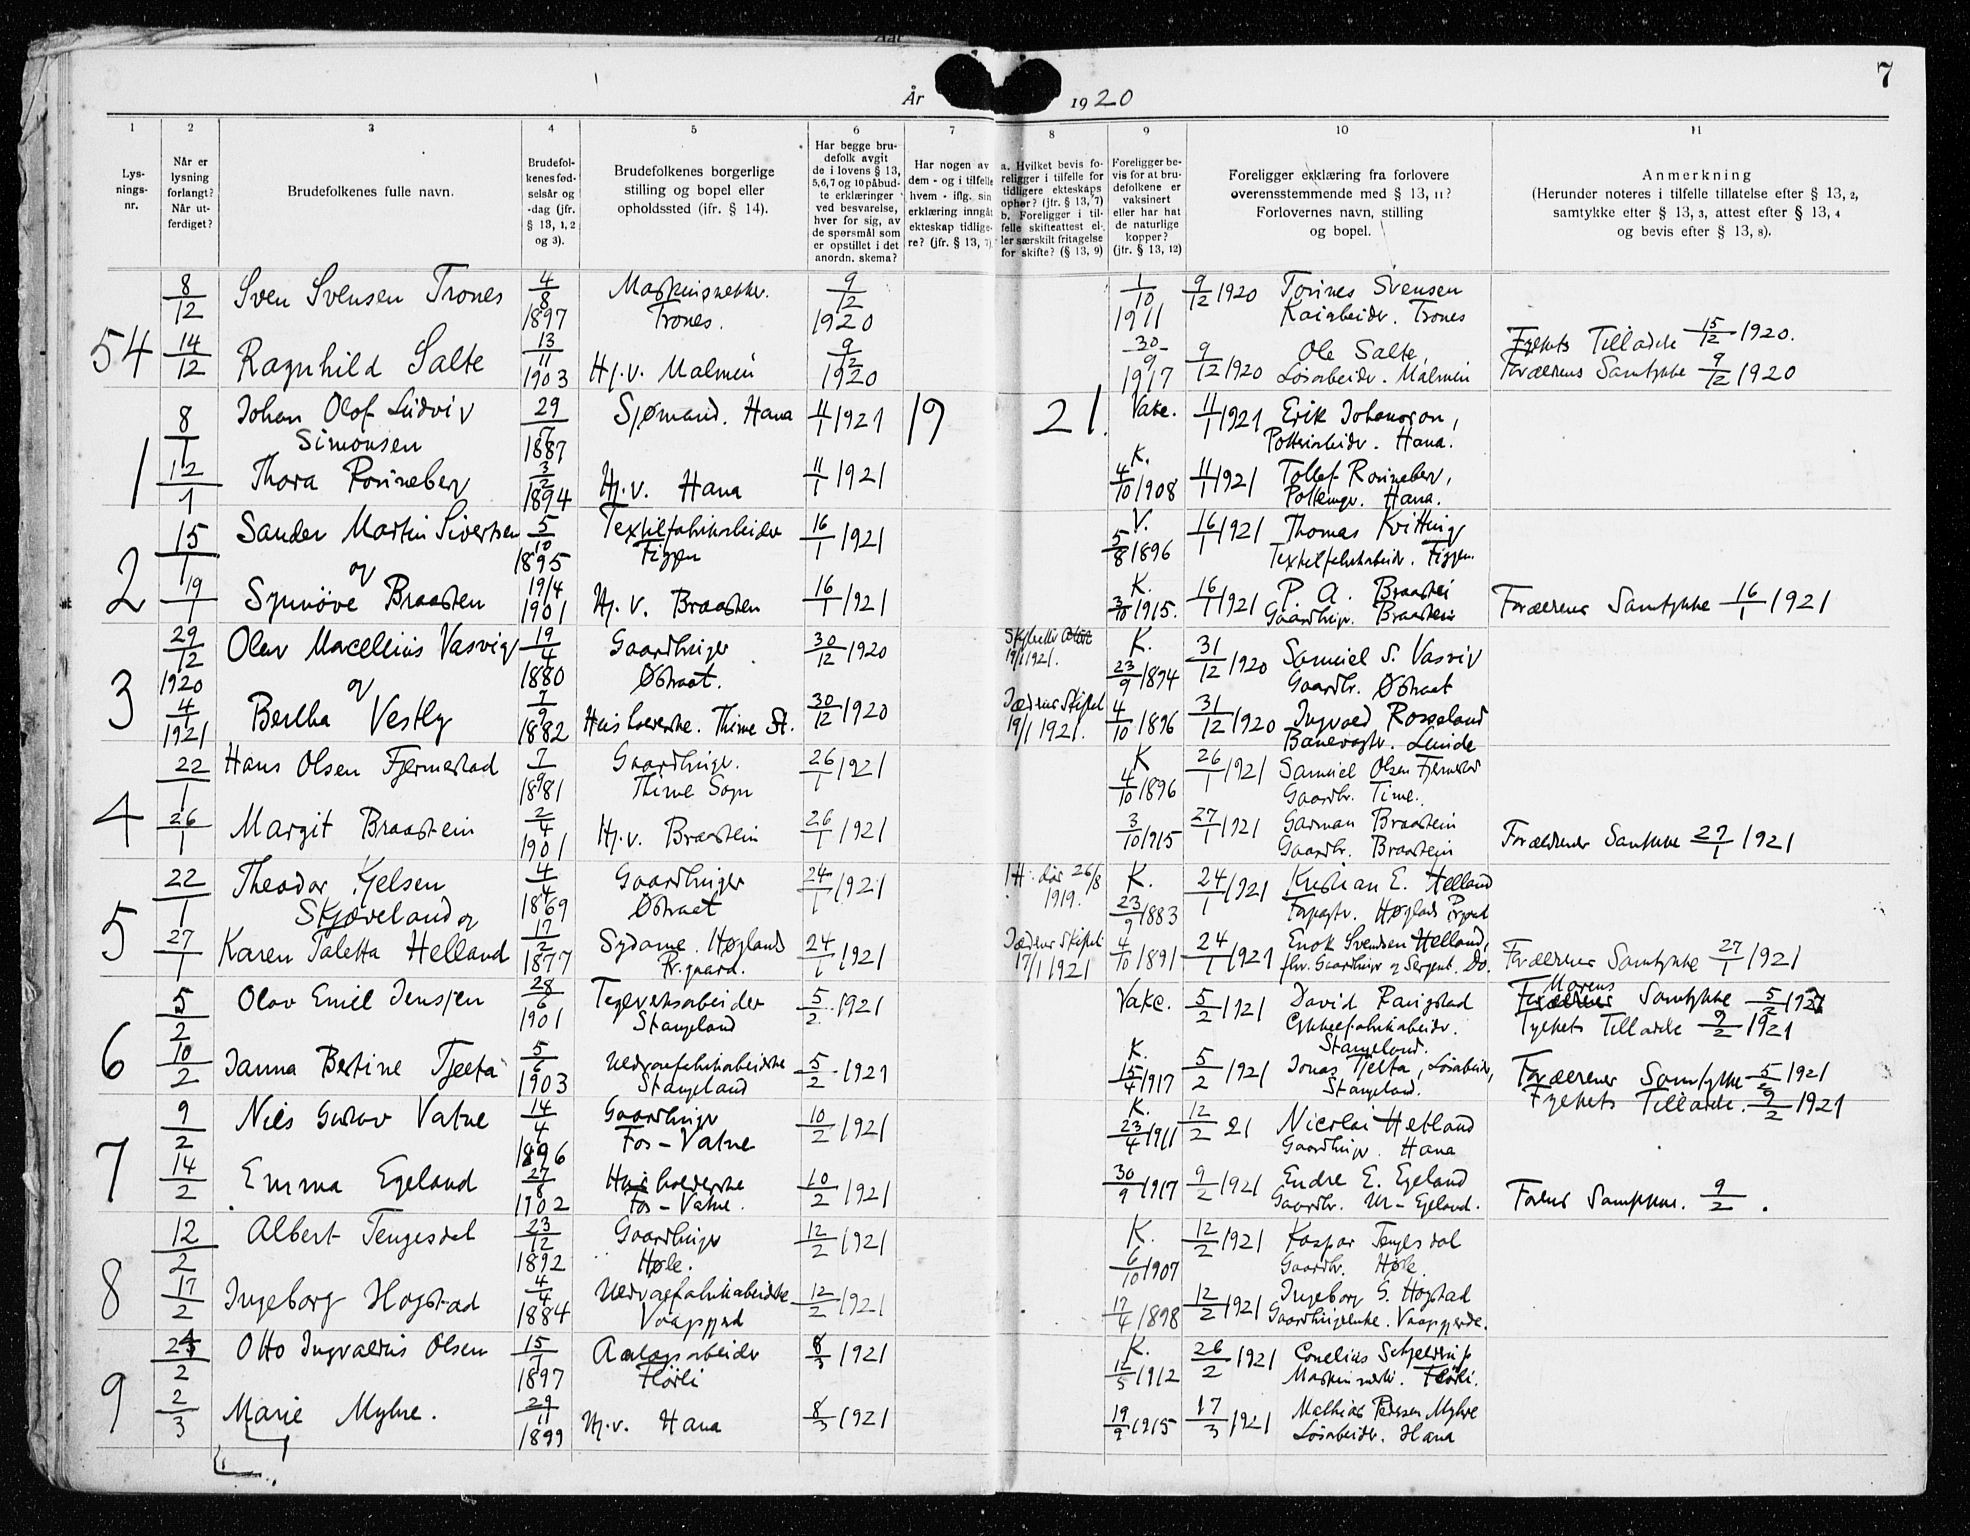 År 1920
7
1 2 3 4 5 6 7 8 9 10 11
Lys-
nings-
nr.
Når er
lysning
forlangt?
Når ut-
ferdiget?
Brudefolkenes fulle navn.
Brudefol-
kenes fød-
selsår og
-dag (jfr.
§ 13, 1, 2
og 3).
Brudefolkenes borgerlige
stilling og bopel eller
opholdssted (jfr. § 14).
Har begge bru-
defolk avgit
de i lovens § 13,
5,6,7 og 10 påbud-
te erklæringer
ved besvarelse,
hver for sig, av
de spørsmål som
er opstillet i det
anordn. skema?
Har nogen av
dem - og i tilfelle
hvem - iflg. sin
erklæring inngåt
ekteskap tidlige-
re? (jfr. § 13, 7).
a. Hvilket bevis fo-
religger i tilfelle for
tidligere ekteskaps
ophør? (jfr. § 13, 7)
b. Foreligger i til-
felle skifteattest el-
ler særskilt fritagelse
for skifte? (§ 13, 9)
Foreligger be-
vis for at bru-
defolkene er
vaksinert
eller har hat
de naturlige
kopper?
(jfr. § 13, 12)
Foreligger erklæring fra forlovere
overensstemmende med § 13, 11?
Forlovernes navn, stilling
og bopel.
Anmerkning
(Herunder noteres i tilfelle tillatelse efter § 13, 2,
samtykke efter § 13, 3, attest efter § 13, 4
og bevis efter § 13, 8).
54
8/12 Sven Svensen Trones 4/8 1897 Trones. 9/12 1920 1/10 1911 9/12 1920 Torines Svensen
Kaiarbeidr. Trones
14/12 Ragnhild Salte 13/11 1903 Hj.v. Malmen 9/12 1920 30/9 1917 9/12 1920 Ole Salte, Fylkets Tilladelse 15/12 1920.
Løsarbeidr. Malmen Forældrenes Samtykke 9/12 1920
1
8/1 Johan Olof Ludvig
Simonsen 29/7 1887 Sjømand. Hana 11/1 1921 19 21. Vakc. 11/1 1921 Erik Johanson,
Hana.
12/1 Thora Ronneberg 3/2 1894 Hj.v. Hana 11/1 1921 K. 4/10 1908 11/1 1921 Tollef Ronneberg,
Hana.
2
15/1 Sander Martin Sivertsen 5/10 1895 Textilfabrikarbeider
Figgen 16/1 1921 V. 5/8 1896 16/1 1921 Thomas
Textilfabrikarbeidr. Figgen.
og
19/1 Synnöve Braasten 19/4 1901 Hj.v. Braasten 16/1 1921 K. 3/10 1915. 16/1 1921 P A. Braastei
Gaardbrugr. Braastein Forældrenes Samtykke 16/1 1921
3
29/12 1920 Olav Marcellius Vasvig 19/4 1880 Gaardbruger
Østraat. 30/12 1920 19/1 1921. K. 23/9 1894 31/12 1920 Samuel S. Vasvig
Gaardbr. Østraat
og
4/1 1921 Bertha Vestly 7/9 1882 Husholderske. Thime St. 30/12 1920 Jæderens Skifteatt
19/1 1921. 4/10 1896 31/12 1920 Ingvald Rosseland
Banevogtr. Lunde
4
22/1 Hans Olsen Fjermestad 7/9 1881 Gaardbruger.
Thime Sogn 26/1 1921 K 4/10 1896 26/1 1921 Samuel Olsen Fjermestad
Gaardbr. Time.
26/1 Margit Braastein 2/4 1901 Hj.v. Braastein 26/1 1921 3/10 1915 27/1 1921 Garman Braastein
Gaardbr. Braastein Forældrenes Samtykke 27/1 1921
5
22/1 Theodor Kjelsen
Skjæveland og 4/4 1869 Gaardbruger
Østraat 24/1 1921 H. dør 26/8
1919. K. 23/9 1883 24/1 1921 Kristian E. Helland
Høgland
27/1 Karen Taletta Helland 17/2 1877 Sydame. Høgland
Pr.gaard. 24/1 1921 Jæderens Skifteatt
17/1 1921 4/10 1891 24/1 1921 Enok Svendsen Helland,
fhv. Gaardbrugr og Sergent. Do. Forældrenes Samtykke 27/1 1921
6
5/2 Olav Emil Jensen 28/6 1901 Teglverksarbeider
Stangeland 5/2 1921 Vakc. 5/2 1921 David Ramstad
Cykkelfabrikabeidr.
Stangeland. Morens
Forældrenes Samtykke 5/2 1921
Fylkets Tilladelse 9/2 1921
10/2 Janna Bertine Tjelta 5/6 1903 Uldvarefabrikabeiderske
Stangeland 5/2 1921 K. 15/4 1917 5/2 1921 Jonas Tjelta, Løsarbeider,
Stangeland. Forældrenes Samtykke 5/2 1921
Fylkets Tilladelse. 9/2 1921
7
9/2 Nils Gustav Vatne 14/4 1896 Gaardbruger
Fos-Vatne 10/2 1921 K. 23/4 1911 12/2 21 Nicolai Hetland
Gaardbruger. Hana
14/2 Emma Egeland 27/8 1902 Husholderske
Fos-Vatne. 10/2 1921 30/9 1917 9/2 1921 Endre E. Egeland
Gaardbr. Ur-Egeland. Farens Samtykke. 9/2.
8
12/2 Albert Tengesdal 23/12 1892 Gaardbruger
Høle. 12/2 1921 K. 6/10 1907 12/2 1921 Kaspar Tengesdal
Gaardbr. Høle
17/2 Ingeborg Hogstad 4/4 1884 Uldvarefabrikabeiderske
Vaagsgjerd 12/2 1921 17/4 1898 12/2 1921 Ingeborg G. Hogstad
Gaardbrugerenke. Vaagsgjerde.
9
24/2 Otto Ingvaldus Olsen 15/7 1897 Anlegsarbeider
Flörli 8/3 1921 K. 12/5 1912 26/2 1921 Cornelius Schjelderup
Flörli.
2/3 Marie Myhre. 29/11 1899 Hj.v. Hana 8/3 1921 19/9 1915 17/3 1921 Mathias Pedersen Myhre
Løsarbeidr. Hana